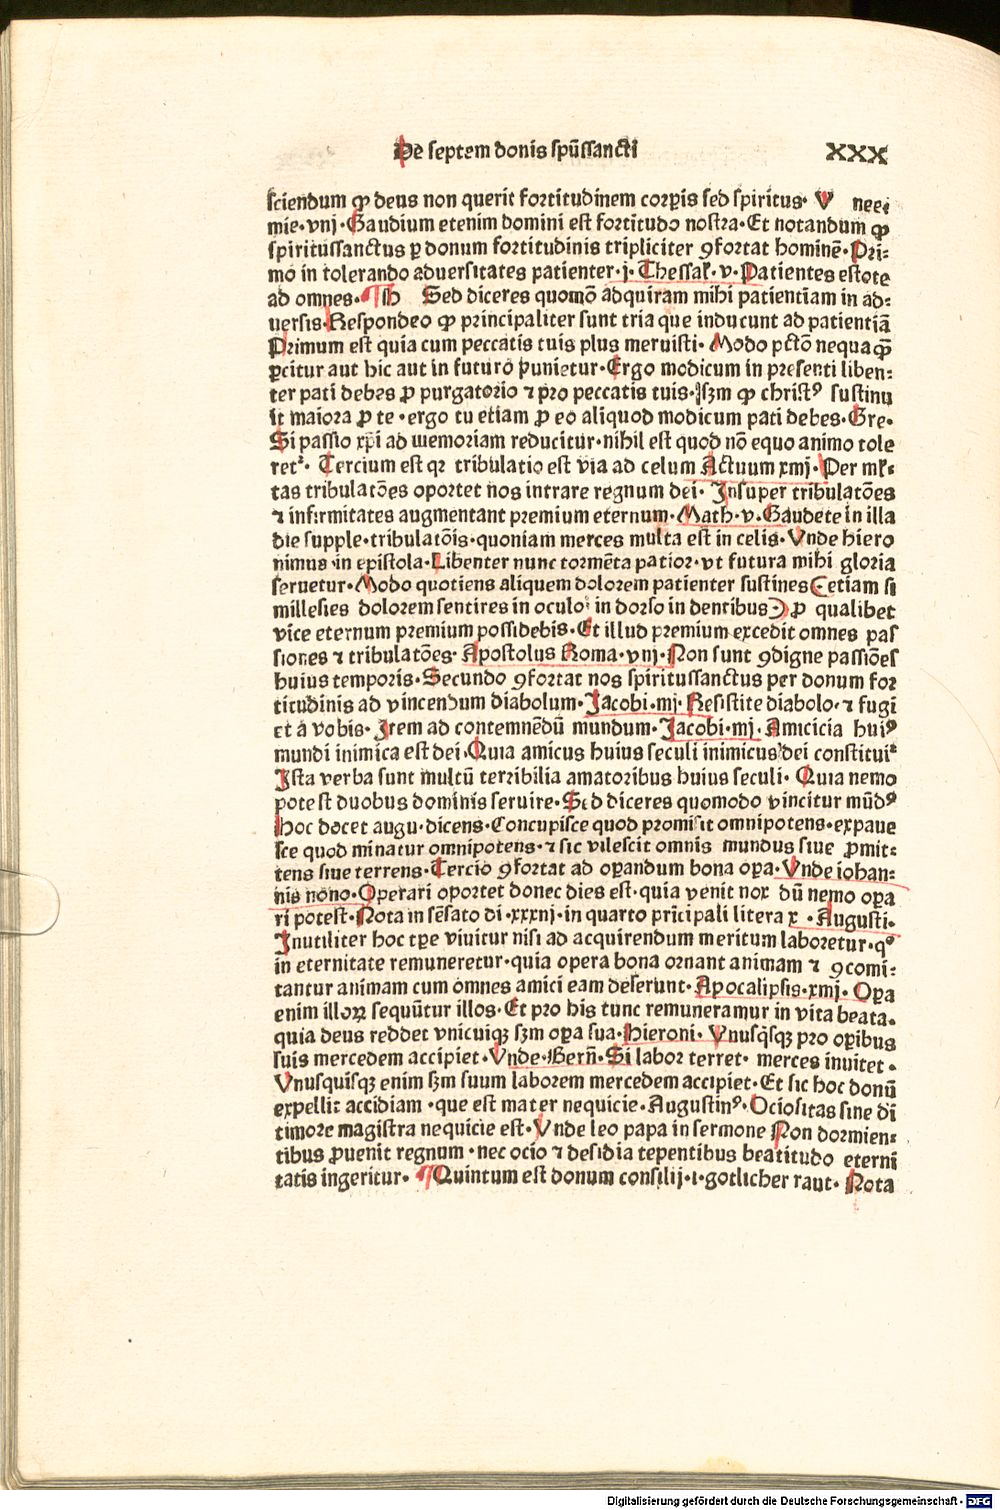 De septem donis spūssancti XXX
sciendum ꝙ deus non querit fortitudinem corꝑis sed spiritus· V neei
mie·vnj·Gaudium etenim domini est fortitudo nostra·Et notandum ꝙ
spiritussanctus ꝑ donum fortitudinis tripliciter ꝯfortat hominē·Pri-
mo in tolerando aduersitates patienter·j·Thessal·v·Patientes estote
ad omnes· ¶ Sed diceres quomō adquiram mihi patientiam in ad-
uersis·Respondeo ꝙ principaliter sunt tria que inducunt ad patientiā
Primum est quia cum peccatis tuis plus meruisti·Modo pctō nequaꝙ̄
ꝑcitur aut hic aut in futuro punietur·Ergo modicum in presenti liben-
ter pati debes ꝓ purgatorio ⁊ pro peccatis tuis·Iẜm ꝙ christꝰ sustinu
it maiora ꝓ te·ergo tu etiam ꝓ eo aliquod modicum pati debes·Gre·
Si passio xp̄i ad memoriam reducitur·nihil est quod nō equo animo tole
ret᷑· Tercium est qꝛ tribulatio est via ad celum Actuum xmj·Per ml̄-
tas tribulatōes oportet nos intrare regnum dei· Insuper tribulatōes
⁊ infirmitates augmentant premium eternum·Math·v·Gaudete in illa
die supple·tribulatōis·quoniam merces multa est in celis·Vnde hiero
nimus in epistola·Libenter nunc tormēta patior·vt futura mihi gloria
seruetur·Modo quotiens aliquem dolorem patienter sustines (etiam si
millesies dolorem sentires in oculo in dorso in dentibus) ꝓ qualibet
vice eternum premium possidebis·Et illud premium excedit omnes pas
siones ⁊ tribulatōes·Apostolus Roma·vnj·Non sunt ꝯdigne passiōes
huius temporis·Secundo ꝯfortat nos spiritussanctus per donum for
titudinis ad vincendum diabolum·Jacobi·mj·Resistite diabolo·⁊ fugi
et a vobis·Irem ad contemnēdū mundum·Jacobi·mj·Amcicia huiꝰ
mundi inimica est dei·Quia amicus huius seculi inimicus dei constitui᷑
Ista verba sunt multū terribilia amatoribus huius seculi·Quia nemo
potest duobus dominis seruire·Sed diceres quomodo vincitur mūdꝰ
Hoc docet augu·dicens·Concupisce quod promisit omnipotens·expaue
sce quod minatur omnipotens·⁊ sic vilescit omnis mundus siue ꝓmit-
tens siue terrens·Tercio ꝯfortat ad oꝑandum bona oꝑa·Vnde iohan-
nis nono·Operari oportet donec dies est·quia venit nox dū nemo oꝑa
ri potest·Nota in sēsato di·xxxnj·in quarto prīcipali litera x·Augusti·
Inutiliter hoc tꝑe viuitur nisi ad acquirendum meritum laboretur·qꝰ
in eternitate remuneretur·quia opera bona ornant animam ⁊ ꝯcomi-
tantur animam cum omnes amici eam deserunt·Apocalipsis·xmj·Oꝑa
enim illoꝝ sequūtur illos·Et pro his tunc remuneramur in vita beata·
quia deus reddet vnicuiqꝫ ẜm oꝑa sua·Hieroni·Vnusq̇sqꝫ pro oꝑibus
suis mercedem accipiet·Vnde·Bern̄·Si labor terret· merces inuitet·
Vnusquisqꝫ enim ẜm suum laborem mercedem accipiet·Et sic hoc donū
expellit accidiam·que est mater nequicie·Augustinꝰ·Ociositas sine di
timore magistra nequicie est·Vnde leo papa in sermone Non dormien-
tibus ꝓuenit regnum·nec ocio ⁊ desidia tepentibus beatitudo eterni
tatis ingeritur· ¶Quintum est donum consilij·i·gotlicher raut·Nota
Digitalisierung gefördert durch die Deutsche Forschungsgemeinschaft - DFG